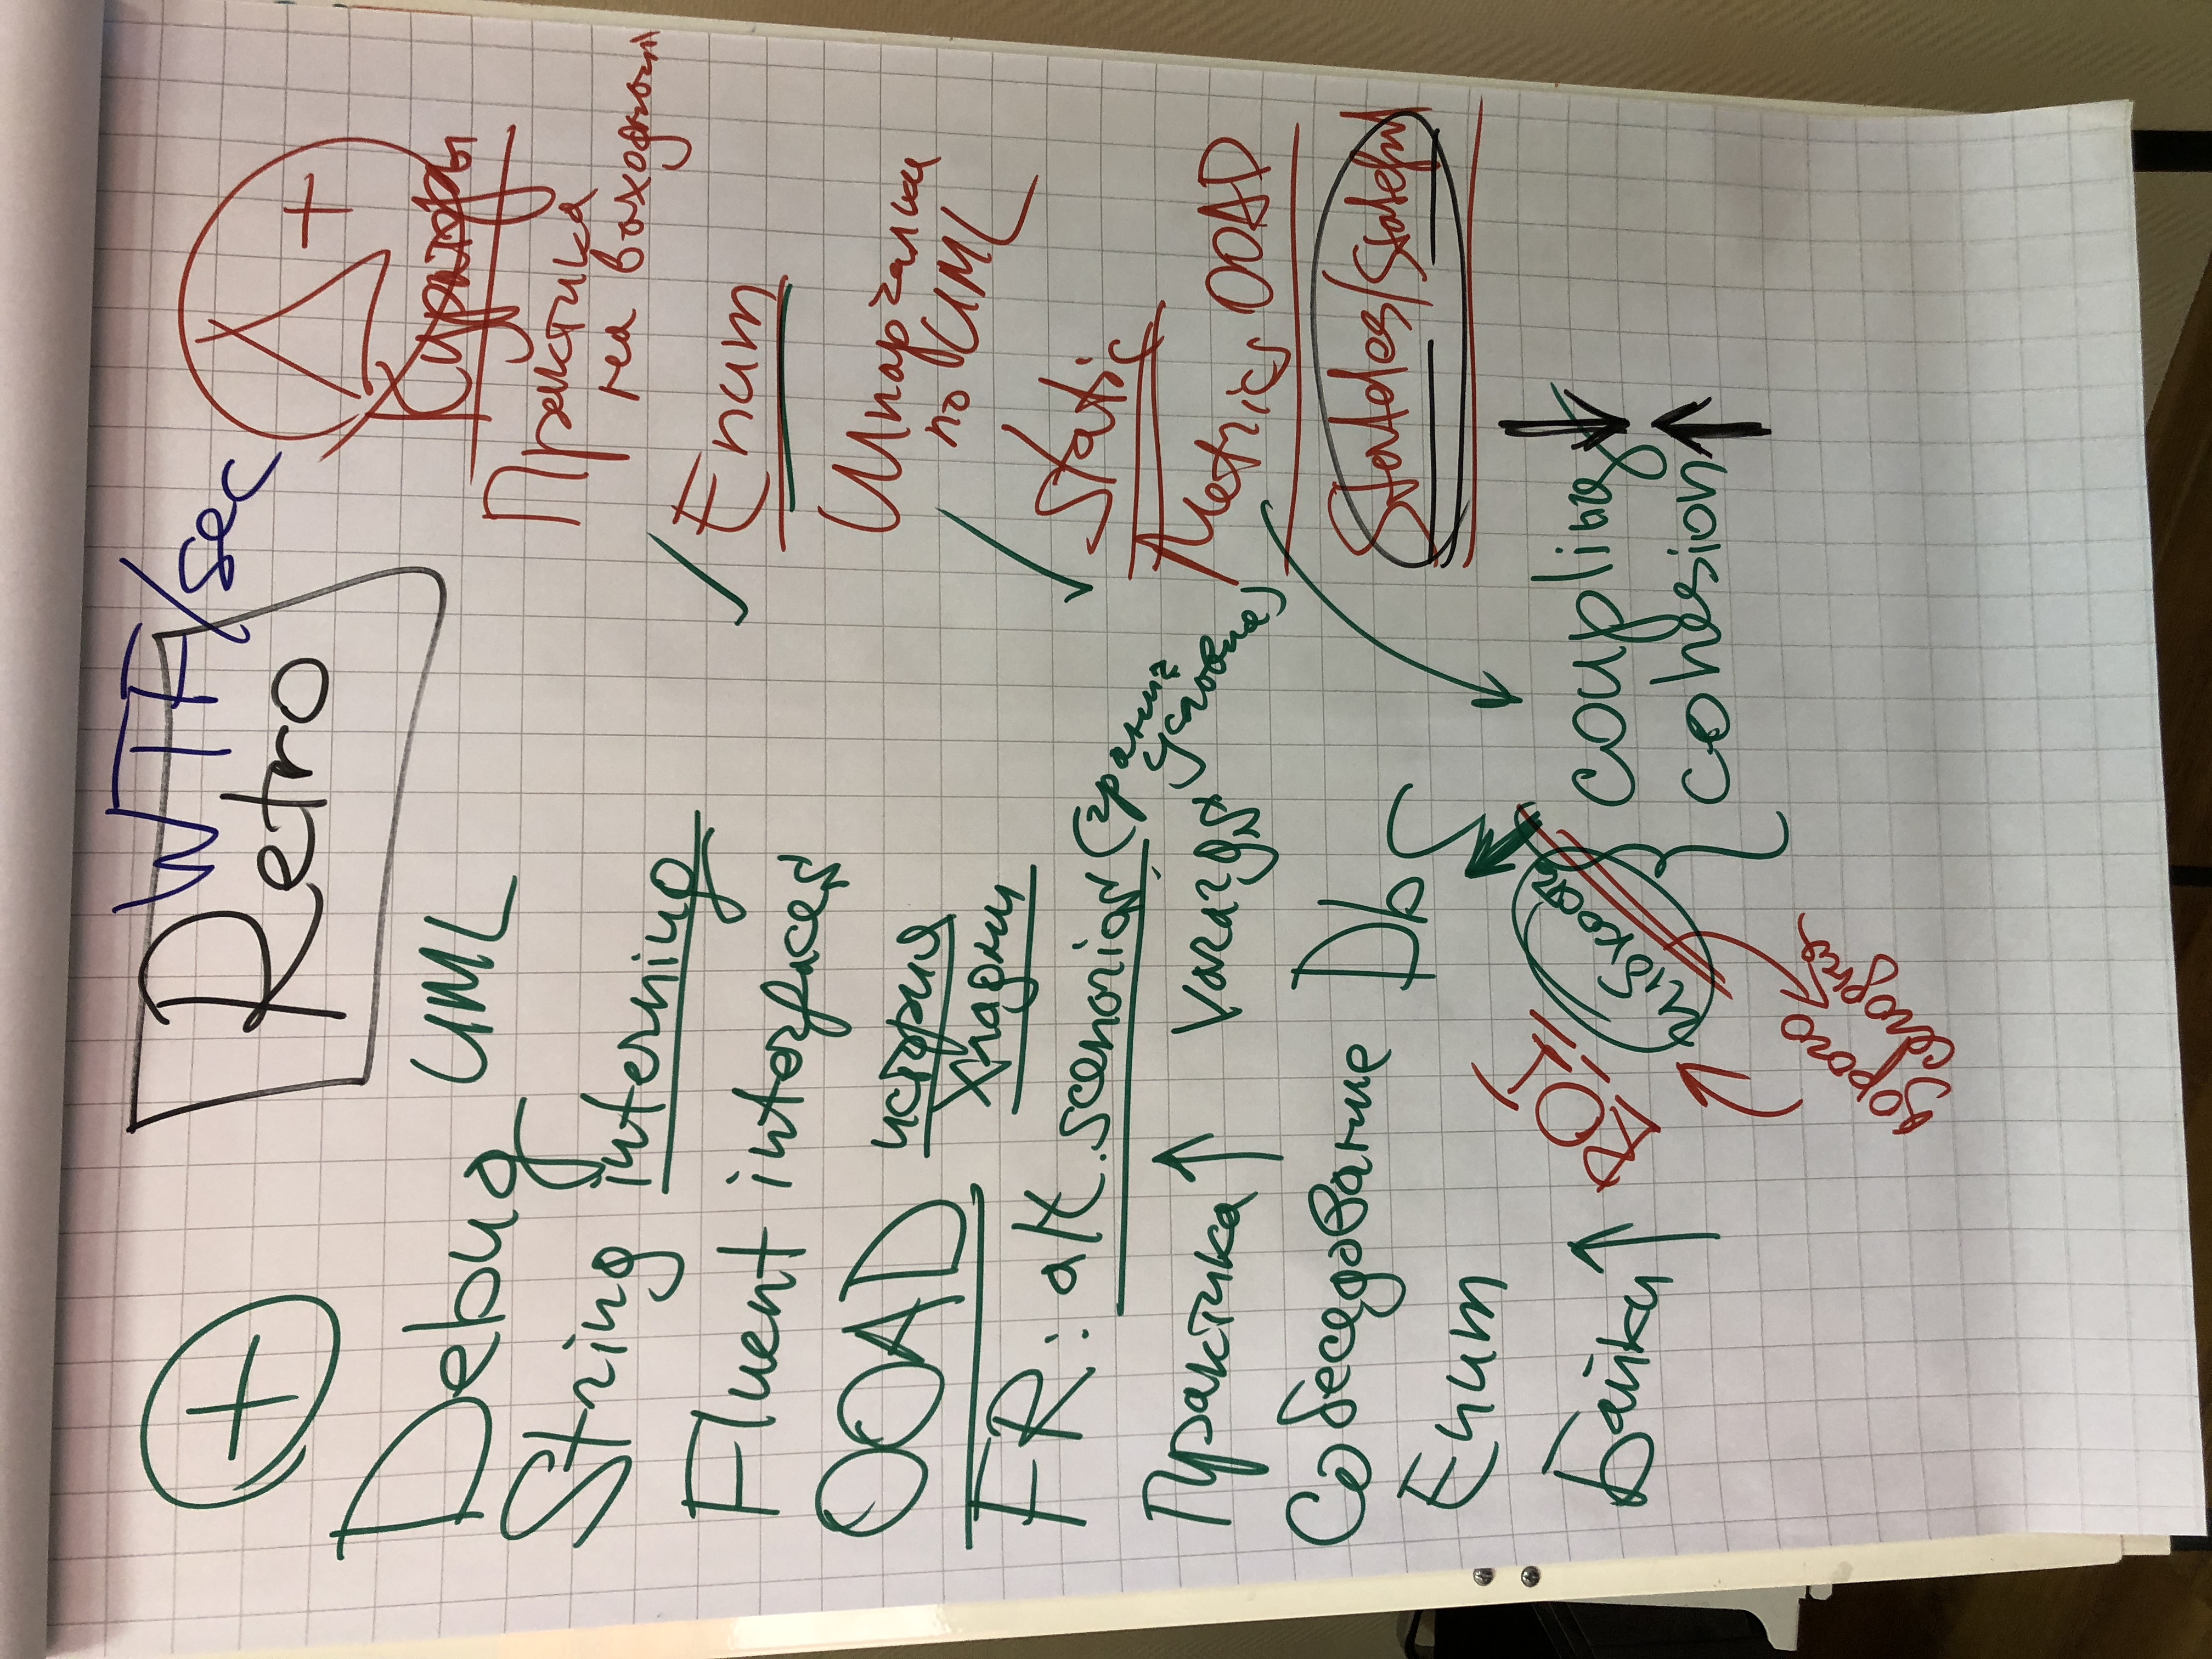 WTF/sec
Retro
+
Δ+
Debug
UML
String interning
Fluent interfaces
OOAD
история
хладни
FR: alt. scenarios (гранич
условия)
Практика ↑
Varargs
Собеседование
Db
Enum
Байки ↑
ROI
гибкость
дорого
сегодня
Кураторы
Практика
на выходных
✓ Enum
Шпаргалки
по UML
✓ Static
Metrics OOAD
Stateless/Stateful
coupling ↓
cohesion ↑